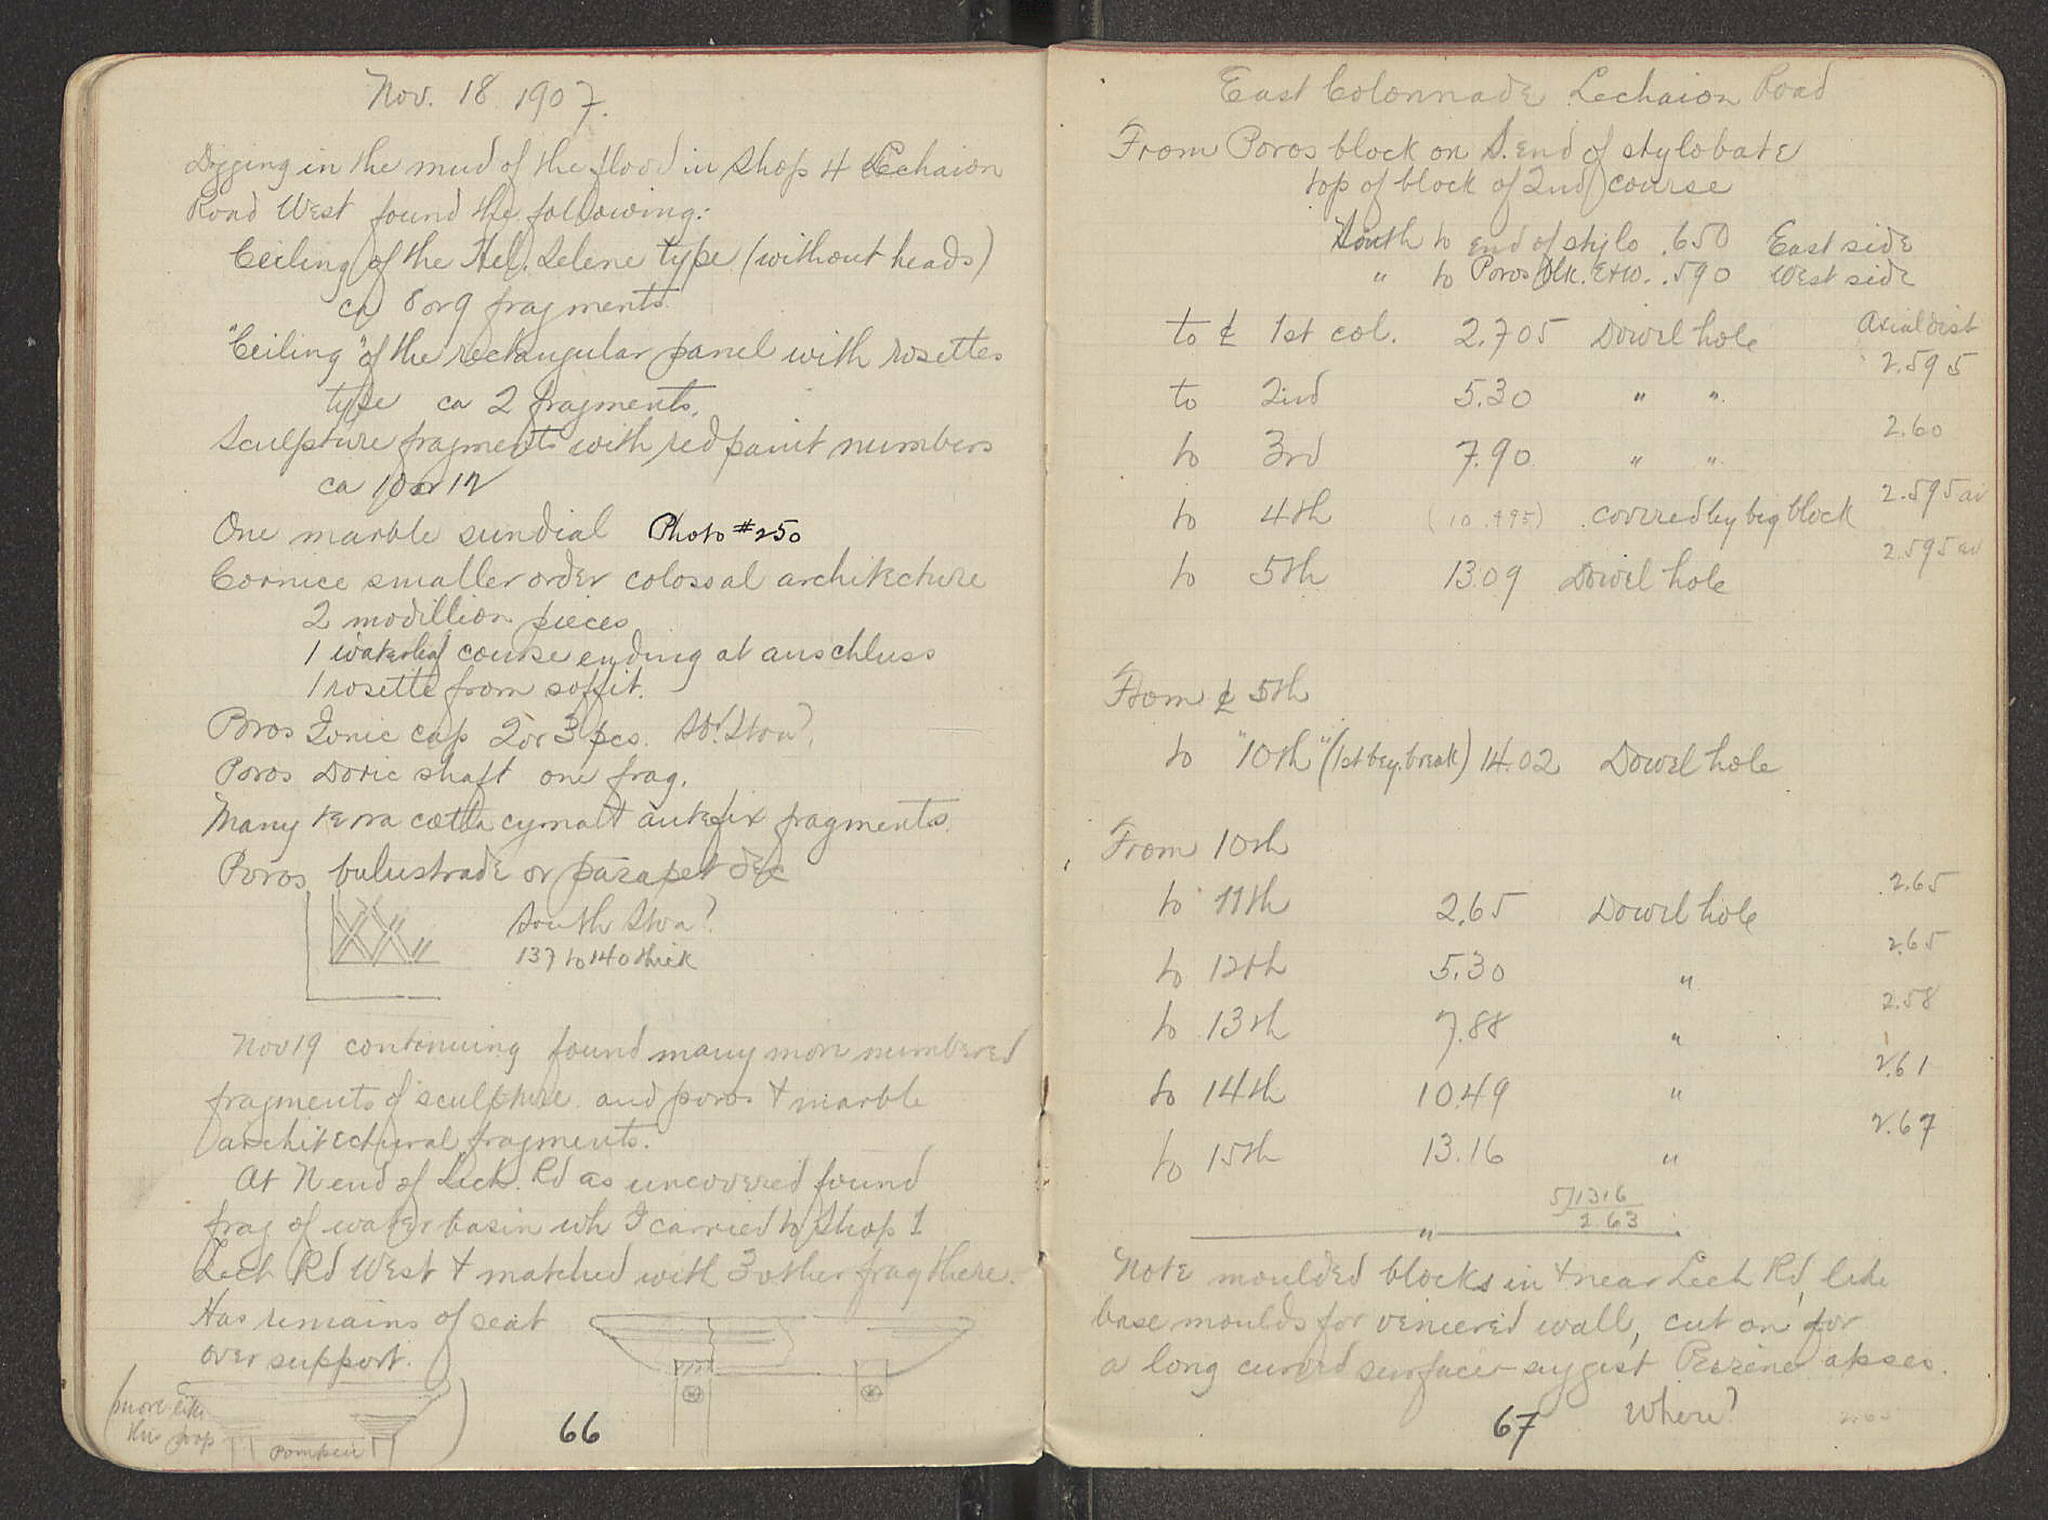 Nov. 18 1907.
Digging in the mud of the flood in Shop 4 Lechaion
Road West found the following:
Ceiling of the Hel. Selene type (without heads)
ca 8 or 9 fragments
"Ceiling" of the rectangular panel with rosettes
type ca 2 fragments.
Sculpture fragments with red paint numbers
ca 10 or 12
One marble sundial Photo #250
Cornice smaller order colossal architecture
2 modillion pieces
1 waterleaf course ending at anschluss
1 rosette from soffit.
Poros Ionic cap 2 or 3 pcs. So. Stoa?
Poros Doric shaft one frag.
Many terra cotta cymatt antefix fragments.
Poros bulustrade or parapet dec
South Stoa?
137 to 140 thick
Nov 19 continuing found many more numbered
fragments of sculpture and poros + marble
architectural fragments.
At N end of Lech. Rd as uncovered found
frag of water basin wh I carried to Shop 1
Lech Rd West + matched with 3 other frag there.
Has remains of seat
over support.
(more like
this prop
Pompeii
66
East Colonnade Lechaion Road
From Poros block on S. end of stylobate
top of block of 2nd course
South to end of stylo .650 East side
" to Poros blk. E+W. .590 West side
to ₵ 1st col. 2.705 Dowel hole Axial dist
2.595
to 2nd 5.30 " "
2.60
to 3rd 7.90 " "
2.595 av
to 4th (10.495) covered by big block
2.595 av
to 5th 13.09 Dowel hole
From ₵ 5th
to "10th" (1st bey. break) 14.02 Dowel hole
From 10th
2.65
to 11th 2.65 Dowel hole
2.65
to 12th 5.30 "
2.58
to 13th 7.88 "
2.61
to 14th 10.49 "
2.67
to 15th 13.16 "
5)1316
2.63
"
Note moulded blocks in + near Lech Rd, like
base moulds for veneered wall, cut on for
a long curved surface suggest Peirene apses.
Where?
67